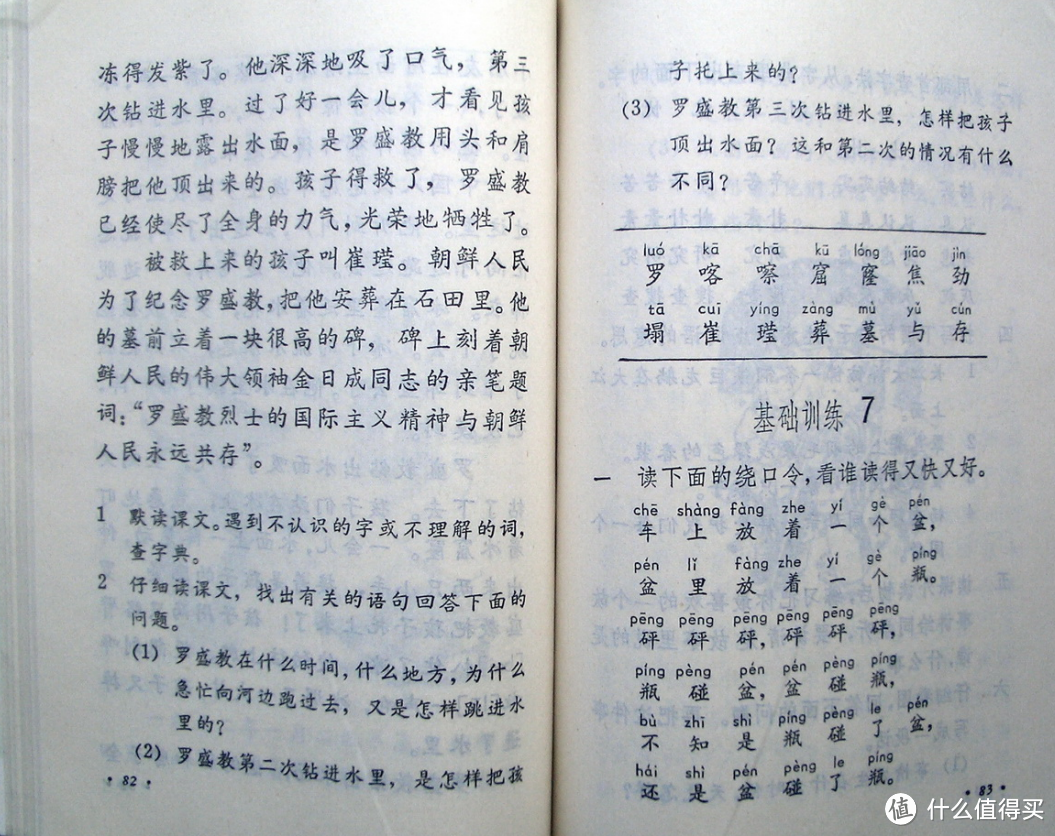 冻得发紫了。他深深地吸了口气，第三
次钻进水里。过了好一会儿，才看见孩
子慢慢地露出水面，是罗盛教用头和肩
膀把他顶出来的。孩子得救了，罗盛教
已经使尽了全身的力气，光荣地牺牲了。
被救上来的孩子叫崔瑩。朝鲜人民
为了纪念罗盛教，把他安葬在石田里。他
的墓前立着一块很高的碑，碑上刻着朝
鲜人民的伟大领袖金日成同志的亲笔题
词：“罗盛教烈士的国际主义精神与朝鲜
人民永远共存”。
1 默读课文。遇到不认识的字或不理解的词，
查字典。
2 仔细读课文，找出有关的语句回答下面的
问题。
(1) 罗盛教在什么时间，什么地方，为什么
急忙向河边跑过去，又是怎样跳进水
里的？
(2) 罗盛教第二次钻进水里，是怎样把孩
·82·
子托上来的？
(3) 罗盛教第三次钻进水里，怎样把孩子
顶出水面？这和第二次的情况有什么
不同？
luó kā chā kū lóng jiāo jìn
罗 喀 嚓 窟 窿 焦 劲
tā cuī yíng zàng mù yǔ cún
塌 崔 瑩 葬 墓 与 存
基础训练 7
一 读下面的绕口令，看谁读得又快又好。
chē shàng fàng zhe yí gè pén
车 上 放 着 一 个 盆，
pén lǐ fàng zhe yí gè píng
盆 里 放 着 一 个 瓶。
pēng pēng pēng pēng pēng pēng
砰 砰 砰，砰 砰 砰，
píng pèng pén pén pèng píng
瓶 碰 盆，盆 碰 瓶，
bù zhī shì píng pèng le pén
不 知 是 瓶 碰 了 盆，
hái shì pén pèng le píng
还 是 盆 碰 了 瓶。
·83·
值 什么值得买